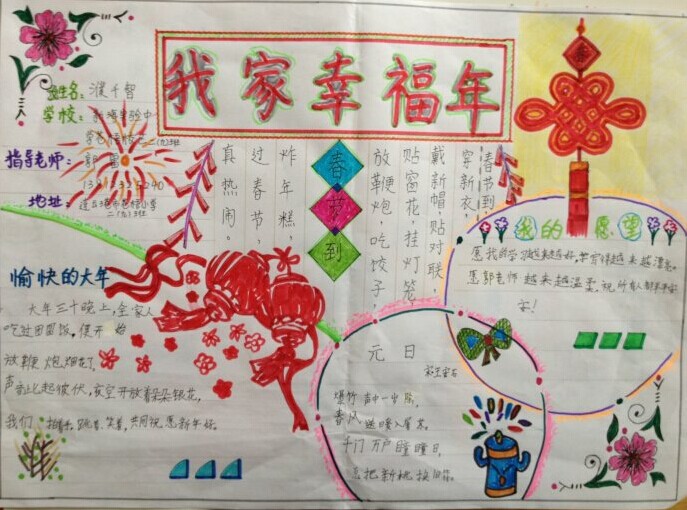 我家幸福年
姓名：濮千智
学校：
二（九）班
指导老师：郭
地址：
二（九）班
春节到
春节到，
穿新衣，
戴新帽，贴对联，
贴窗花，挂灯笼，
放鞭炮，吃饺子，
炸年糕，
过春节，
真热闹。
我的愿望
愿我的学习越来越好，字写得越来越漂亮。
愿郭老师越来越温柔，祝所有人
！
愉快的大年
大年三十晚上，全家人
吃过团圆饭，便开始
放鞭炮、烟花了，
声音此起彼伏，夜空开放着朵朵银花，
我们拍着手，跳着，笑着，共同祝愿新年好。
元日
宋王安石
爆竹声中一岁除，
春风送暖入屠苏。
千门万户瞳瞳日，
总把新桃换旧符。